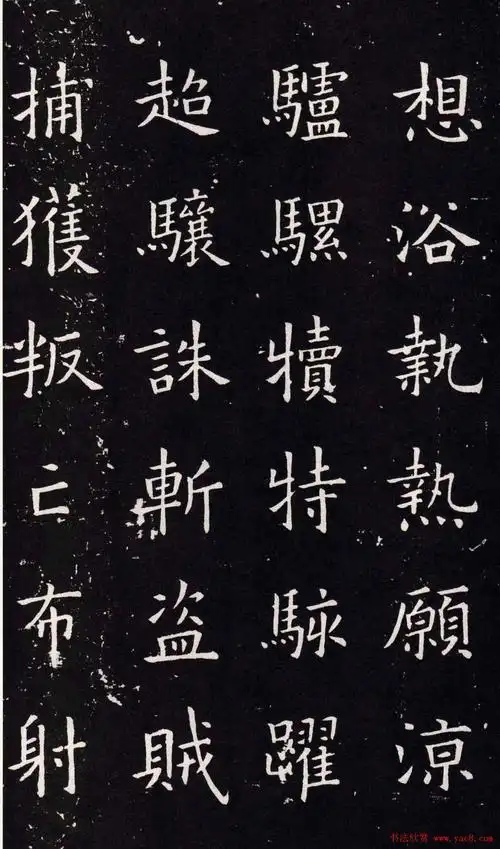 想浴執熱願涼
驢騾犢特駭躍
超驤誅斬盜賊
捕獲叛亡布射
书法欣赏 www.yac8.com